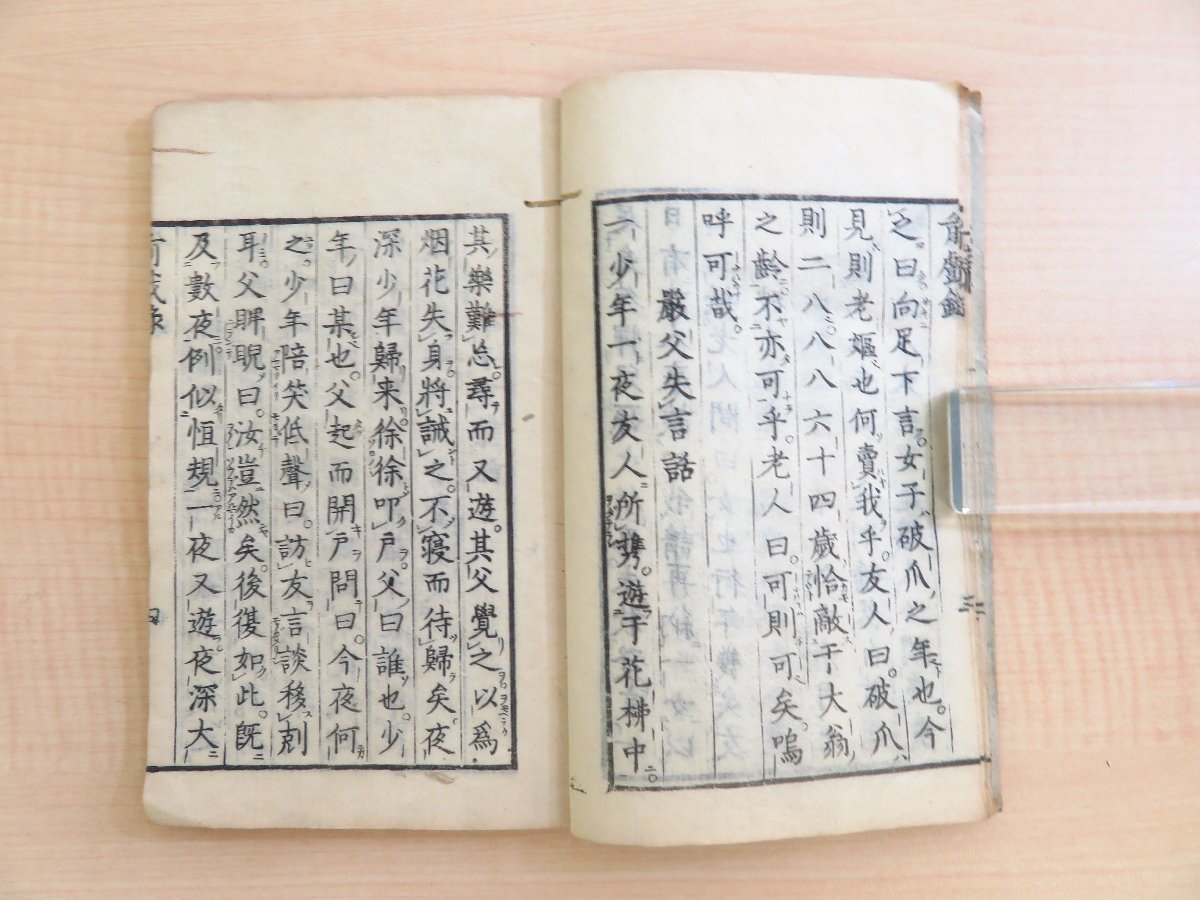 之曰向足下言女子破爪之年也。今
見則老嫗也何賣我乎。友人曰。破爪
則二八八八六十四歲恰敵于大翁
之齡不亦可乎。老人曰。可則可矣嗚
呼可哉。
嚴父失言話
一少年一夜友人所携。遊于花柳中
其樂難忘。尋而又遊。其父覺之以爲
烟花失身。將誡之。不寢而待歸矣。夜
深少年歸来。徐徐叩戶。父曰誰也。少
年曰某也。父起而開戶問曰。今夜何
之。少年陪笑低聲曰。訪友言談移刻
耳。父睥睨曰。汝豈然矣。後復如此。既
及數夜。例似恒規。一夜又遊。夜深大
四